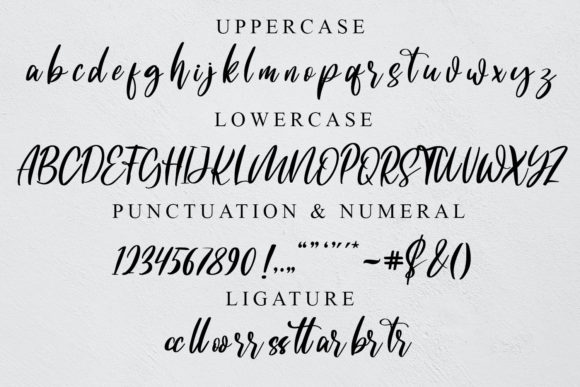 UPPERCASE
abcdefghijklmnopqrstuvwxyz
LOWERCASE
ABCDEFGHIJKLMNOPQRSTUVWXYZ
PUNCTUATION & NUMERAL
1234567890!,.,„“”‘’"'* ~#$&()
LIGATURE
cc ll oo rr ss tt ar br tr